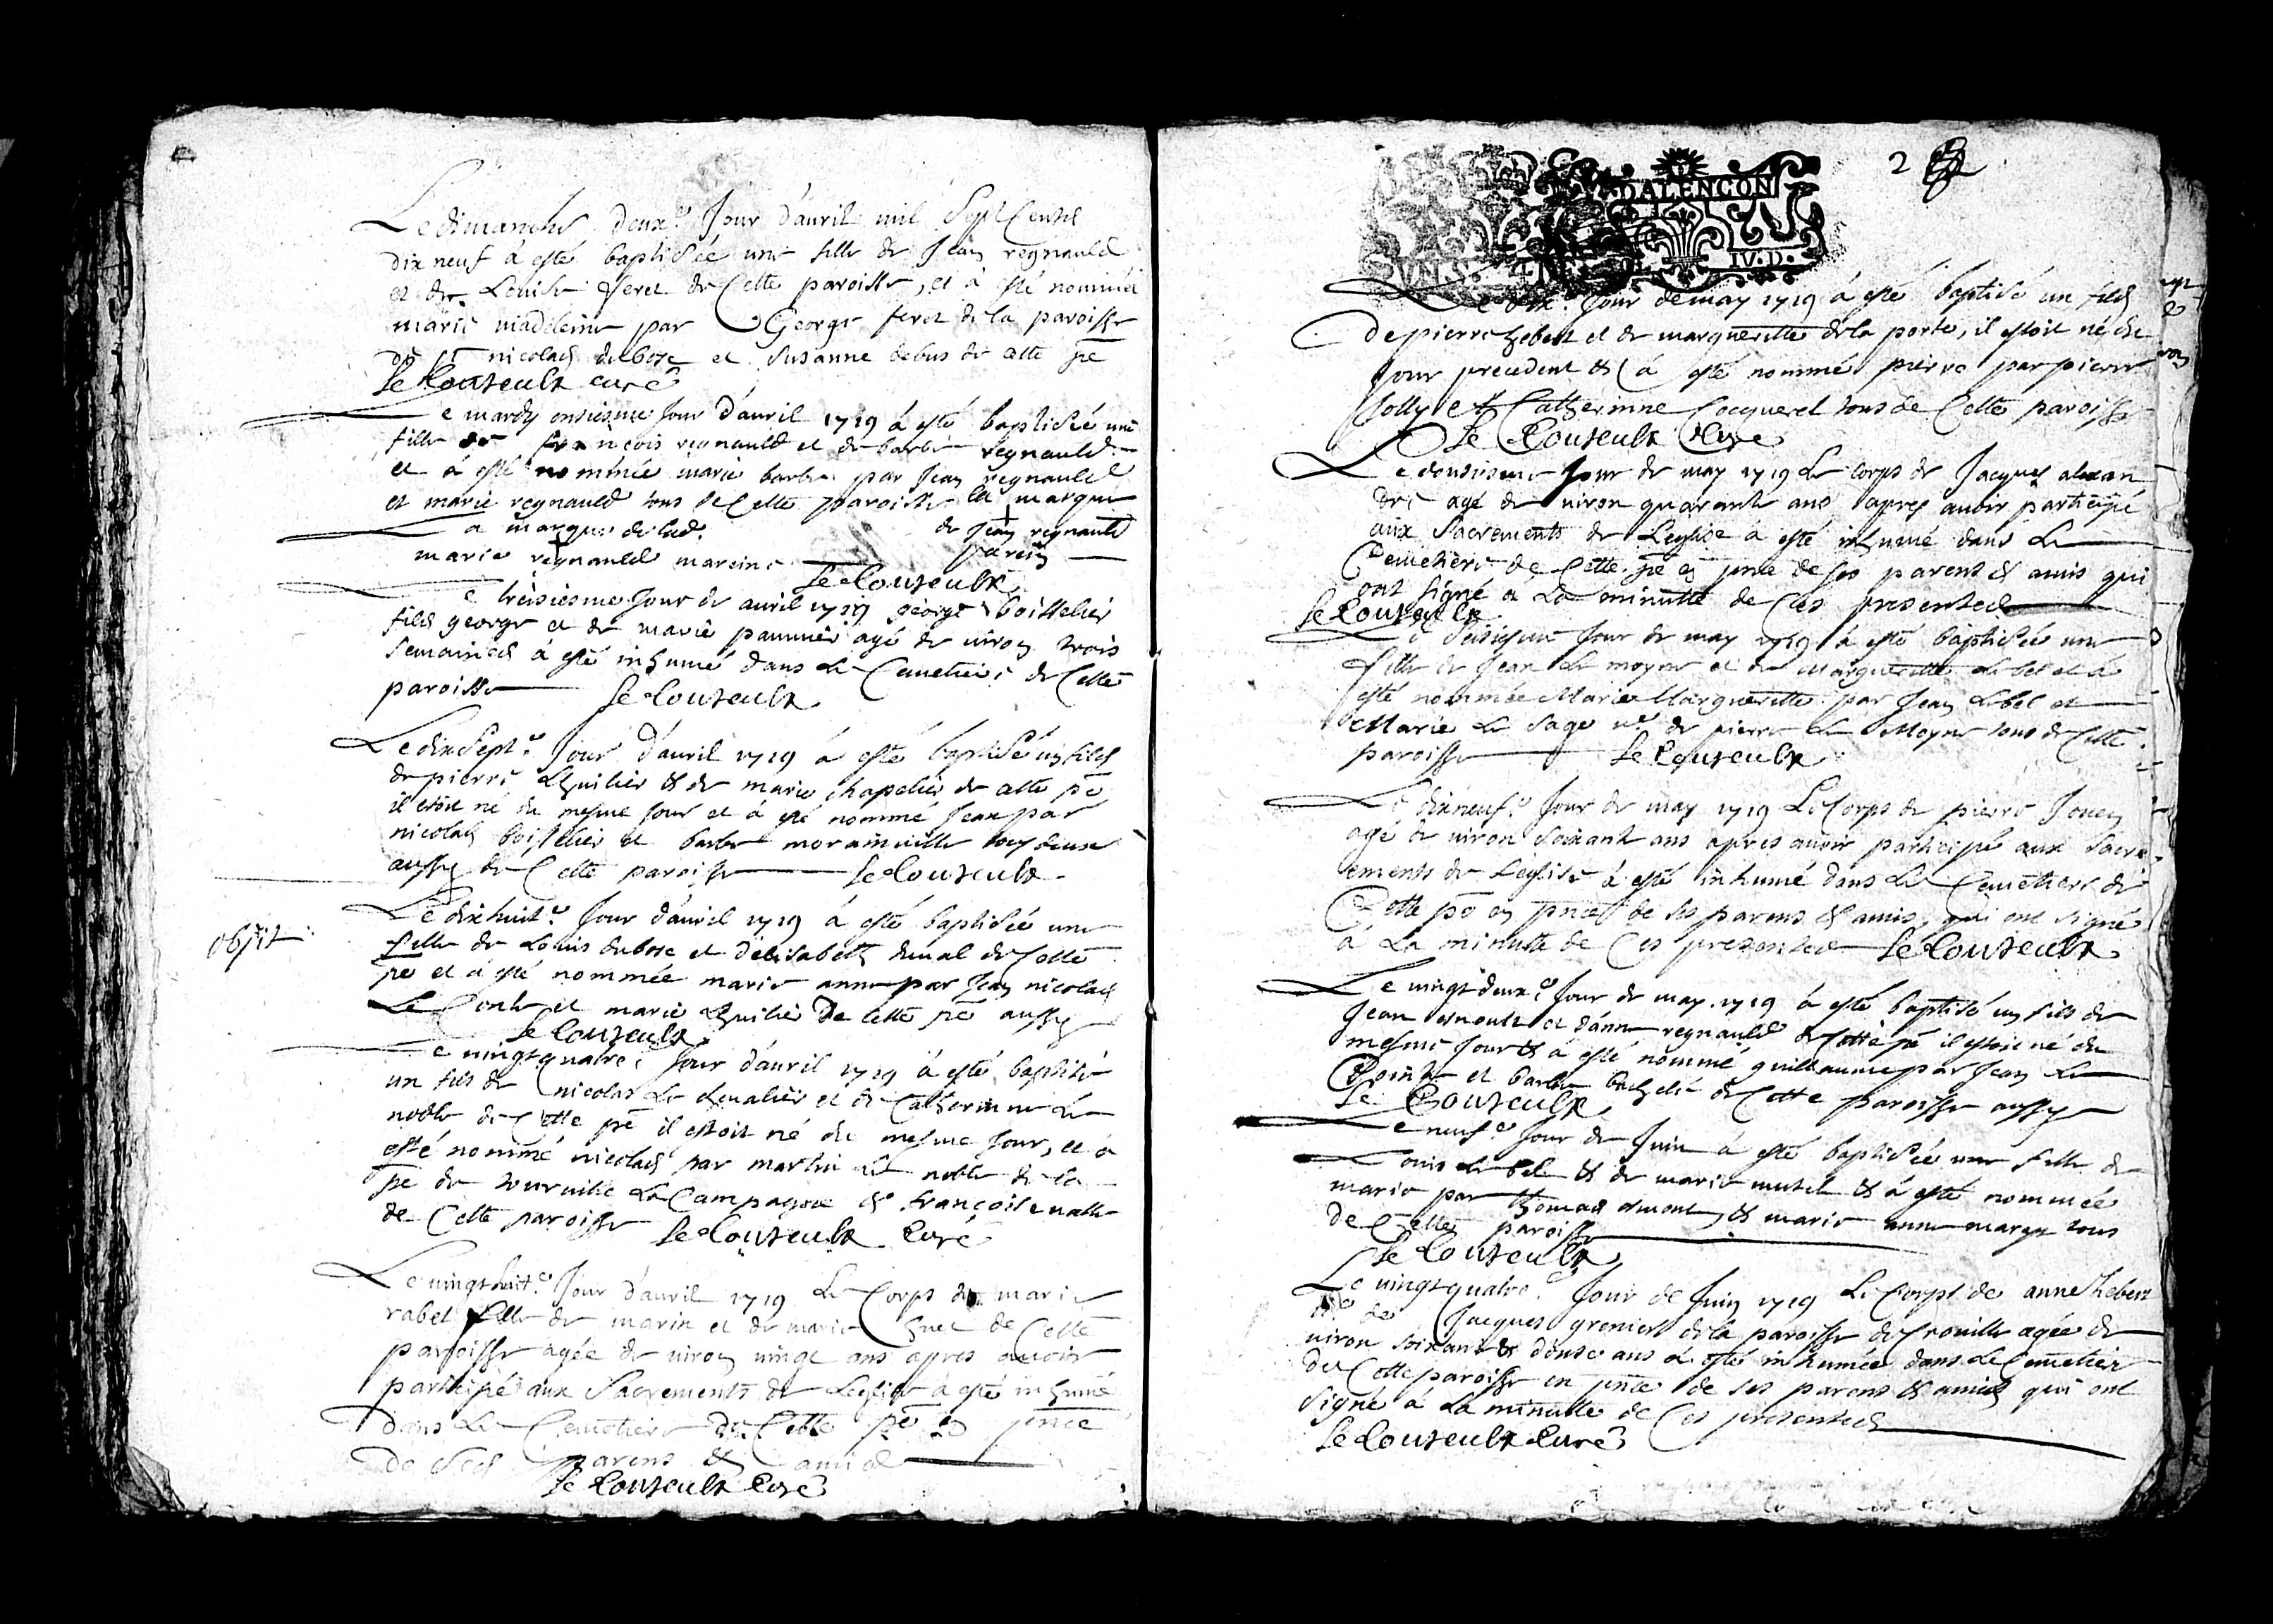 Le dimanche deux.e Jour d'auril mil Sept Cents
dix neuf à esté baptisée une fille de Jean regnauld
et de Louise feret de Cette paroisse, et à esté nommée
marie madeleine par George feret de la paroisse
de st nicolas dubosc et Susanne debus de cette pē
Le Couteulx curé
Le mardy onsiesme Jour d'auril 1719 à esté baptisée une
fille de francois regnauld et de barbe regnauld
et à esté nommée marie barbe par Jean regnauld
et marie regnauld tous de Cette paroisse la marque
La marque de lad. de Jean regnauld
marie regnauld mareine parein
Le Couteulx
Le treisiesme Jour de auril 1719 george boisselier
fils george et de marie paumier agé de uiron trois
Semaines à esté inhumé dans le Cemetiere de Cette
paroisse Le Couteulx
Le dixsept.e Jour d'auril 1719 á esté baptisé un fils
de pierre Lhuilier & de marie chapelier de cette pē
il estoit né du mesme Jour et à esté nommé Jean par
nicolas boisselier et barbe morainuille tous deux
aussy de Cette paroisse Le Couteulx
obijt
Le dixhuit.e Jour d'auril 1719 á esté baptisée une
fille de Louis dubosc et d'elisabeth duual de Cette
pē et à esté nommée marie anne par Jean nicolas
Le Conte et marie Lhuilier De Cette pē aussy
Le Couteulx
Le uingtquatre.e Jour d'auril 1719 à esté baptisé
un fils de nicolas Le cheualier et de Catherinne Le
noble de Cette pē il estoit né du mesme Jour, et à
esté nommé nicolas par martin Le noble de la
pē de tourville La Campagne & françoise
de Cette paroisse Le Couteulx Curé
Le uingthuit.e Jour d'auril 1719 Le Corps de marie
rabel fille de marin et de marie huet de Cette
paroisse agée de uiron uingt ans apres auoir
participé aux Sacrements de Leglise à esté inhumé
dans Le Cemetiere de Cette pē en pnce
de Ses parens & amis
Le Couteulx Curé
2
DALENCON
IV. D.
Jour de may 1719 á esté baptisé un fils
de pierre hebert et de margueritte de la porte, il estoit né du
Jour precedent & à esté nommé pierre par pierre
Jolly et Catherinne Cocquerel tous de Cette paroisse
Le Couteulx Curé
Le dousiesme Jour de may 1719 Le corps de Jacques alexan
dre agé de uiron quarante ans apres auoir participé
aux Sacrements de Leglise à esté inhumé dans Le
Cemetiere de Cette pē en pnce de ses parens & amis qui
ont signé a La minutte de Ces presentes
Le Couteulx
Le Seisiesme Jour de may 1719 à esté baptisée une
fille de Jean Le moyne et de Margueritte Le bel et à
esté nommée Marie Margueritte par Jean Lebel et
Marie Le Sage ue de pierre Le Moyne tous de Cette
paroisse Le Couteulx
Le dixneuf.e Jour de may 1719 Le Corps de pierre Jouen
agé de uiron soixante ans apres auoir participé aux Sacre
ements de Leglise à esté inhumé dans Le Cemetiere de
Cette pē en pnce de ses parens & amis, qui ont signé
à La minutte de Ces presentes Le Couteulx
Le uingtdeux.e Jour de may 1719 á esté baptisé un fils de
Jean esnoult et d'anne regnauld de Cette pē il estoit né du
mesme Jour & à esté nommé guillaume par Jean Le
Cointe et barbe bachelé de Cette paroisse aussy
Le Couteulx
Le neuf.e Jour de Juin à esté baptisée une fille de
Louis Le bel & de marie mutel & à esté nommée
marie par thomas & marie anne tous
de Cette paroisse
Le Couteulx
Le uingtquatre.e Jour de Juin 1719 Le Corps de anne hebert
ue de Jacques grenier de la paroisse de Crouille agée de
uiron soixante & douse ans à esté inhumée dans Le Cemetier
de Cette paroisse en pnce de ses parens & amis qui ont
signé à La minutte de Ces presentes
Le Couteulx Curé